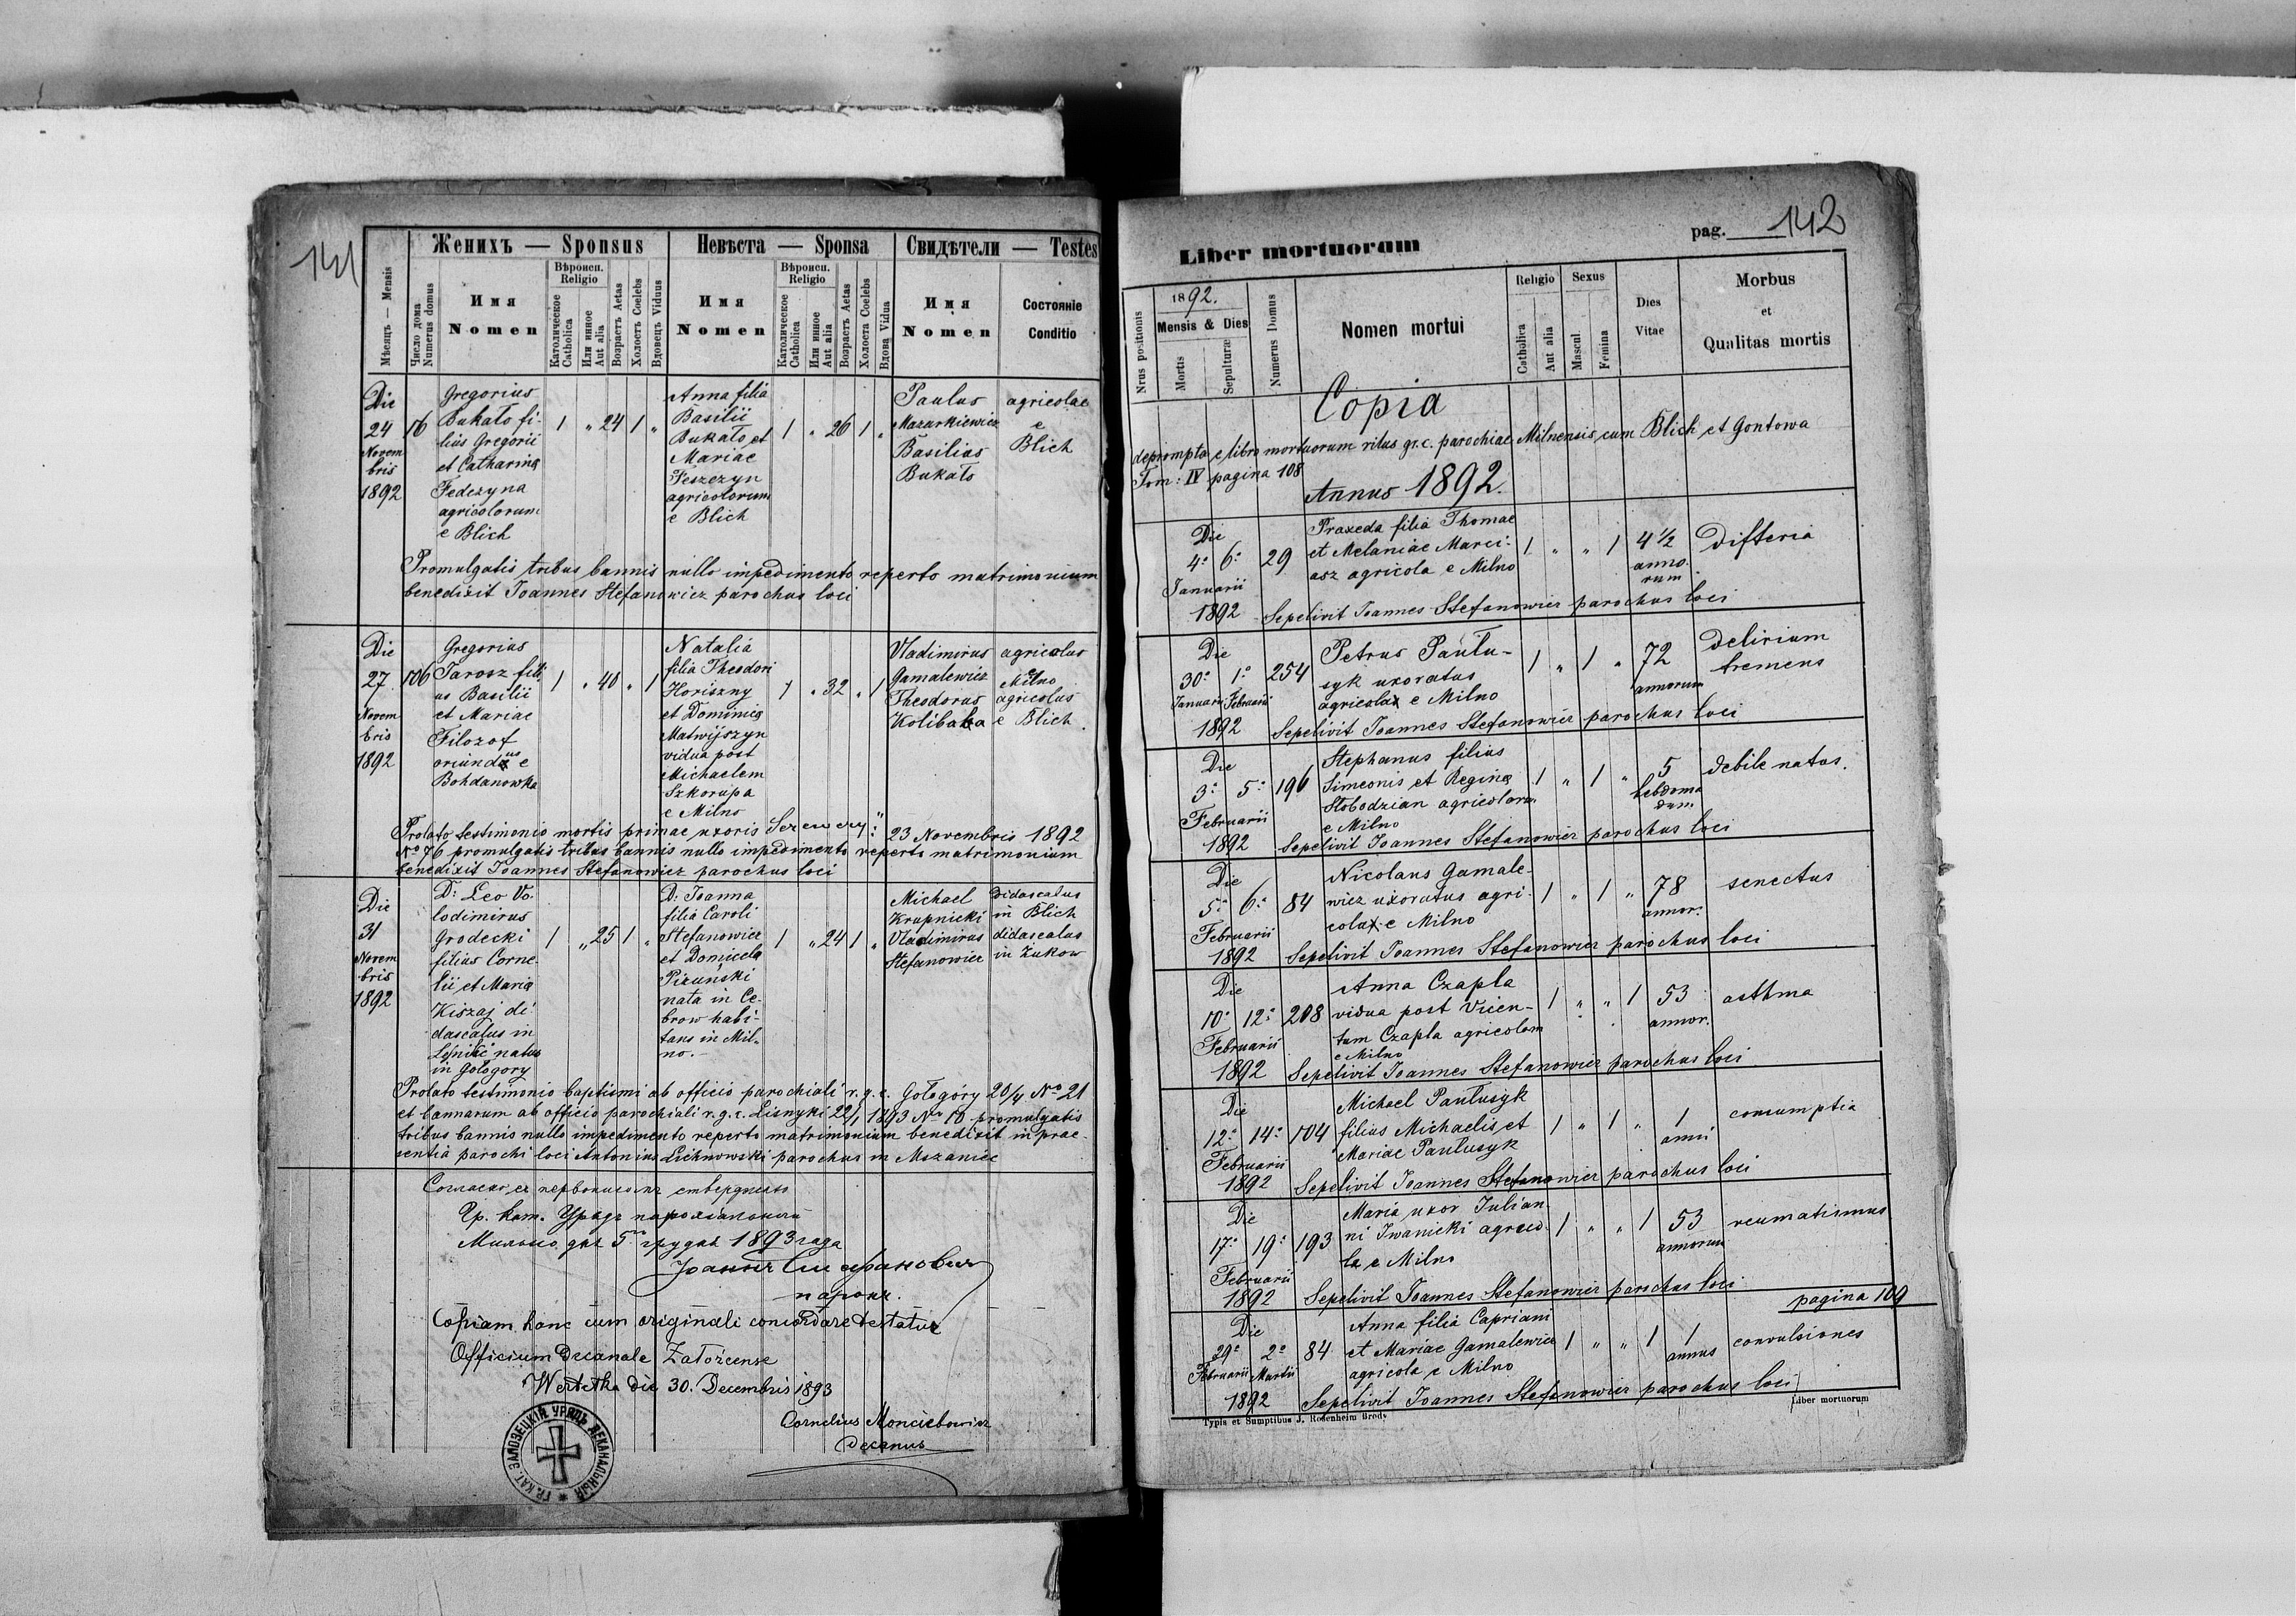 141
Женихъ — Sponsus
Невѣста — Sponsa
Свидѣтели — Testes
Мѣсяцъ — Mensis
Число дома Numerus domus
Имя
Nomen
Вѣроисп.
Religio
Католическое Catholica
Или инное Aut alia
Возрастъ Aetas
Холостъ Coelebs
Вдовецъ Viduus
Имя
Nomen
Вѣроисп.
Religio
Католическое Catholica
Или инное Aut alia
Возрастъ Aetas
Холоста Coelebs
Вдова Vidua
Имя
Nomen
Состояніе
Conditio
Die
24
Novem
bris
1892
16
Gregorius
Bukato fi-
lius Gregorii
et Catharina
Fedezyna
agricolorum
e Blich
1 " 24 1 "
Anna filia
Basilii
Bukato et
Mariae
Feszezyn
agricolorum
e Blich
1 " 26 1 "
Paulus
Mazurkiewicz
Basilius
Bukato
agricolae
e
Blich
Promulgatis tribus bannis nullo impedimento reperto matrimonium
benedixit Joannes Stefanowicz parochus loci
Die
27
Novem
bris
1892
106
Gregorius
Tarosz fili
us Basilii
et Mariae
Filozof
oriundus e
Bohdanowka
1 " 40 " 1
Natalia
filia Theodori
Horiszny
et Dominica
Matwijszyn
vidua post
Michaelem
Szkorupa
e Milno
1 " 32 " 1
Vladimirus
Gamalewicz
Theodorus
Kolibaba
agricolus
e
Milno
agricolus
e Blich
Prolato testimonio mortis primae uxoris 23 Novembris 1892
No 76 promulgatis tribus bannis nullo impedimento reperto matrimonium
benedixit Joannes Stefanowicz parochus loci
Die
31
Novem
bris
1892
D: Leo Vo-
lodimirus
Grodecki
filius Corne-
lii et Maria
Kiszaj di-
dascalus in
natus
in Gologory
1 " 25 1 "
D: Joanna
filia Caroli
Stefanowicz
et Domicela
Pizuński
nata in Ce-
brow habi-
tans in Mil-
no.-
1 " 24 1 "
Michael
Krupnicki
Vladimirus
Stefanowicz
didascalus
in Blich
didascalus
in Zukow
Prolato testimonio baptismi ab officio parochiali r. g. c. Gołogóry 20/4 No 21
et bannarum ab officio parochiali r. g. c. Lisnyki 22/1 1893 No 10 promulgatis
tribus bannis nullo impedimento reperto matrimonium benedixit in prae-
sentia parochi loci Antonius Lichnowski parochus in Mszaniec
Согласно съ первописомъ стверджаєтъ
Гр. кат. Урядъ парохіальный
Мильно дня 5го грудня 1893 года
Іоаннъ Стефановичъ
парохъ.
Copiam hanc cum originali concordare testatur
Officium Decanale Załozcense
Wertelka die 30. Decembris 1893
Cornelius Moncibowicz
Decanus
ГР. КАТ. ЗАЛОЗЕЦКІЙ УРЯДЪ ДЕКАНАЛЬНЫЙ
Liber mortuorum
pag. 142
Nrus positionis
1892.
Mensis & Dies
Mortis
Sepulturæ
Numerus Domus
Nomen mortui
Religio
Catholica
Aut alia
Sexus
Mascul.
Femina
Dies
Vitae
Morbus
et
Qualitas mortis
Copia
deprompta e libro mortuorum ritus gr. c. parochiae Milnensis cum Blich et Gontowa
Tom: IV pagina 108
Annus 1892.
Die
4: 6:
Januarii
1892
29
Praxeda filia Thomae
et Melaniae Marci-
asz agricola e Milno
1 " " 1
4 1/2
anno-
rum
difteria
Sepelivit Joannes Stefanowicz parochus loci
Die
30: 1:
Januarii Februarii
1892
254
Petrus Pautu-
syk uxoratus
agricola e Milno
1 " 1 "
72
annorum
delirium
tremens
Sepelivit Joannes Stefanowicz parochus loci
Die
3: 5:
Februarii
1892
196
Stephanus filius
Simeonis et Regina
Słobodzian agricolarum
e Milno
1 " 1 "
5
hebdoma
dum
debile natus.
Sepelivit Joannes Stefanowicz parochus loci
Die
5: 6:
Februarii
1892
84
Nicolaus Gamale-
wicz uxoratus agri-
cola e Milno
1 " 1 "
78
annor.
senectus
Sepelivit Joannes Stefanowicz parochus loci
Die
10: 12:
Februarii
1892
208
Anna Czapla
vidua post Vicen-
tum Czapla agricolam
e Milno
1 " " 1
53
annor.
asthma
Sepelivit Joannes Stefanowicz parochus loci
Die
12: 14:
Februarii
1892
104
Michael Pautusyk
filius Michaelis et
Mariae Pautusyk
1 " 1 "
1
anni
consumptia
Sepelivit Joannes Stefanowicz parochus loci
Die
17: 19:
Februarii
1892
193
Maria uxor Julian
ni Iwanicki agrico-
la e Milno
1 " " 1
53
annorum
reumatismus
Sepelivit Joannes Stefanowicz parochus loci
pagina 109
Die
29: 2:
Februarii Martii
1892
84
Anna filia Capriani
et Mariae Gamalewicz
agricola e Milno
1 " " 1
1
annus
convulsiones
Sepelivit Joannes Stefanowicz parochus loci
Typis et Sumptibus J. Rosenheim Brody
Liber mortuorum